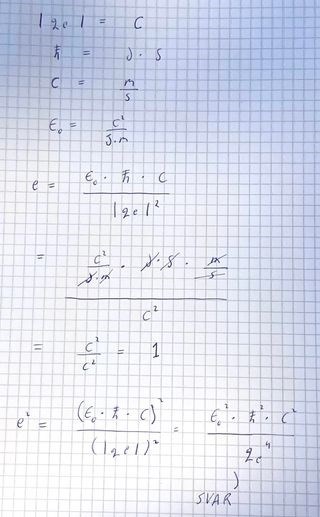 |qe| = C
ħ = J · s
C = m/s
ϵ₀ = C²/J·m
e = ϵ₀ · ħ · C / |qe|²
= C²/J·m · J·s · m/s / C²
= C²/C² = 1
e² = (ϵ₀ · ħ · C)² / (|qe|)² = ϵ₀² · ħ² · C² / qe⁴
SVAR